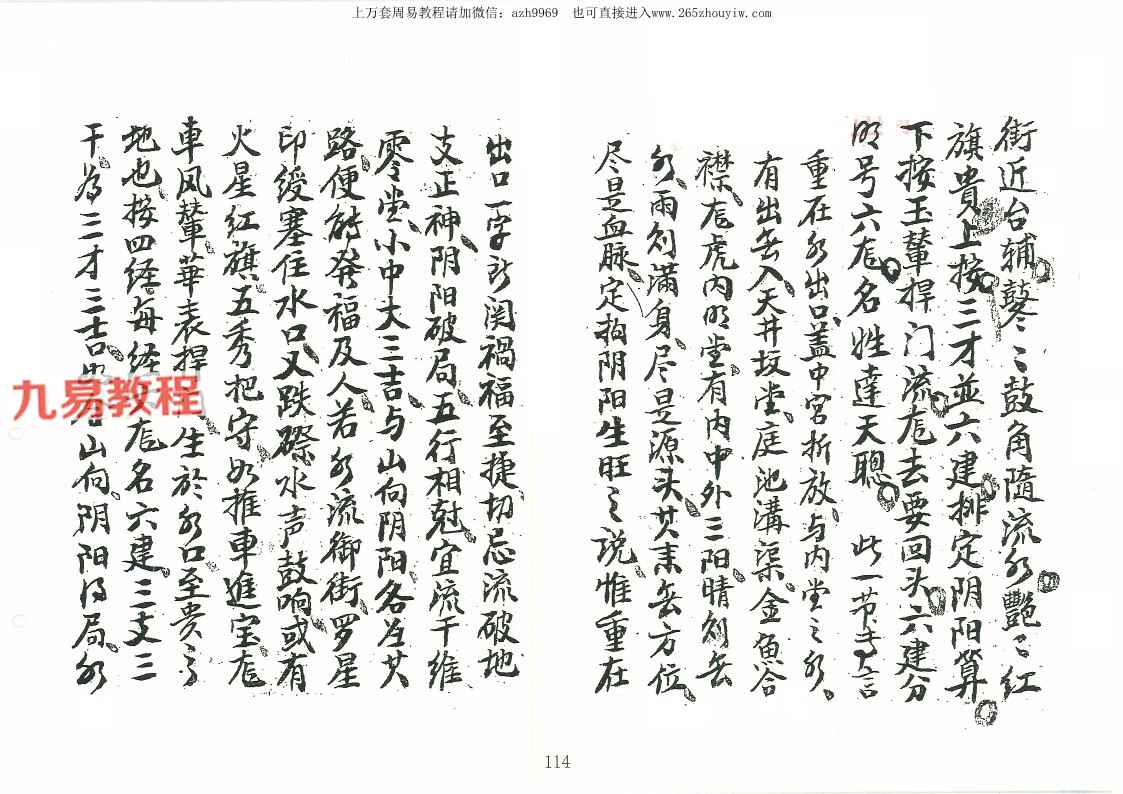 上万套周易教程请加微信：azh9969　也可直接进入www.265zhouyiw.com
街近台辅鼕〻鼓角隨流水艷〻红
旗貴上按三才並六建排定阴阳算
下按玉輦捍门流龙去要回头六建分
明号六龙名姓達天聰　此一节专言
重在水出口盖中宮折放与内堂之水
有出无入天井坟堂庭池溝渠金魚合
襟龙虎内明堂有内中外三阳晴则无
水雨则满身尽是源头其来无方位
尽是血脉定拘阴阳生旺之说惟重在
出口一字 関禍福至捷切忌流破地
支正神阴阳破局五行相尅宜流干維
零堂小中大三吉与山向阴阳各在其
路便能發福及人若水流御街罗星
印綬塞住水口又跌磜水声鼓响或有
火星红旗五秀把守如推車進宝龙
車凤輦華表捍 生於水口至贵之
地也按四经每经 龙名六建三支三
干為三才三吉 山向阴阳得局水
九易教程
114